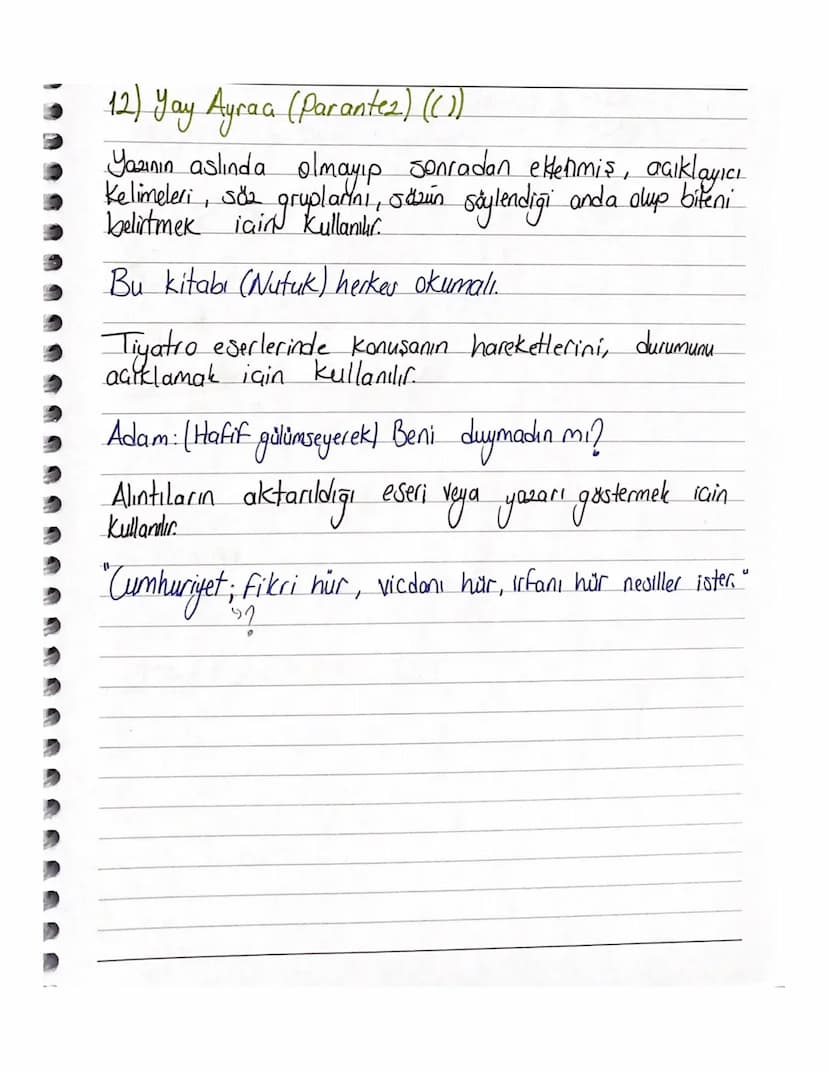 12) Yay Ayraç (Parantez) (( ))
Yazının aslında olmayıp sonradan eklenmiş, açıklayıcı
kelimeleri, söz gruplarını, sözün söylendiği anda olup biteni
belirtmek için kullanılır.
Bu kitabı (Nutuk) herkes okumalı.
Tiyatro eserlerinde konuşanın hareketlerini, durumunu
açıklamak için kullanılır.
Adam: (Hafif gülümseyerek) Beni duymadın mı?
Alıntıların aktarıldığı eseri veya yazarı göstermek için
kullanılır.
"Cumhuriyet; fikri hür, vicdanı hür, irfanı hür nesiller ister."
?